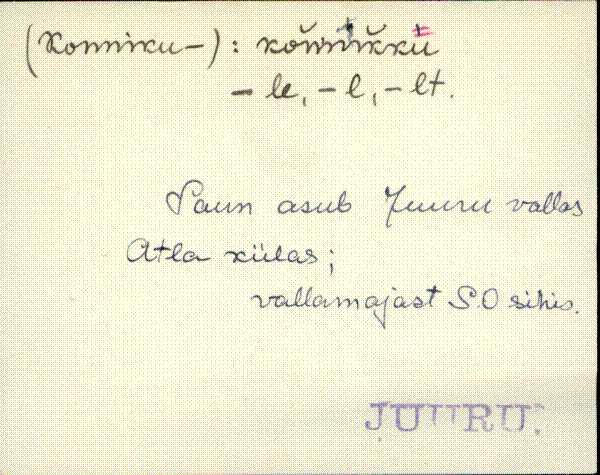 (Konniku-): koňnikku
-le, -l, -lt.
Saun asub Juuru vallas
Atla külas;
vallamajast S.O sihis.
JUURU.